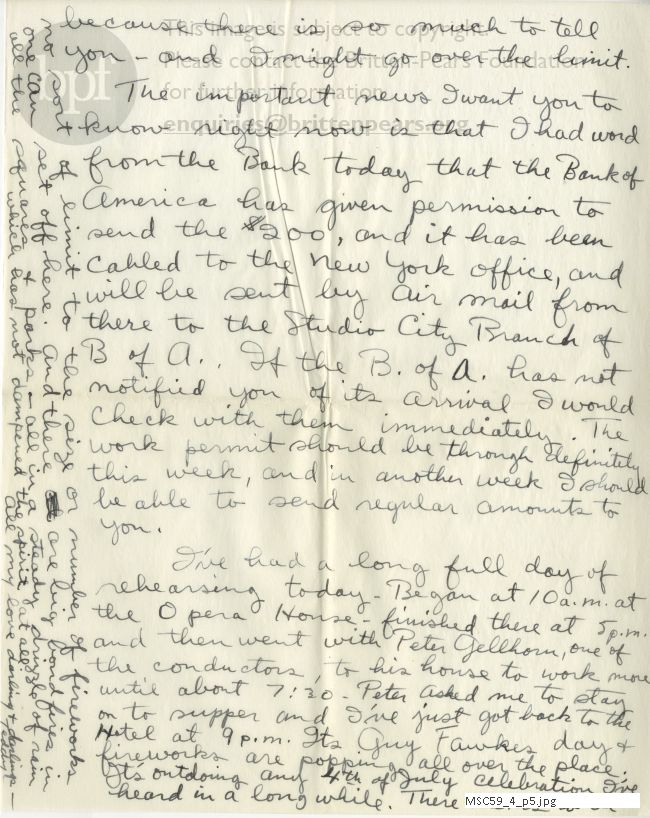 because there is so much to tell
you - and I might go over the limit.
The important news I want you to
know right now is that I had word
from the Bank today that the Bank of
America has given permission to
send the $200, and it has been
cabled to the New York office, and
will be sent by air mail from
there to the Studio City Branch of
B of A.. If the B. of A. has not
notified you of its arrival I would
check with them immediately. The
work permit should be through definitely
this week, and in another week I should
be able to send regular amounts to
you.
I've had a long full day of
rehearsing today - Began at 10 a.m. at
the Opera House - finished there at 5 p.m.
and then went with Peter Gellhorn, one of
the conductors, to his house to work more
until about 7:30 - Peter asked me to stay
on to supper and I've just got back to the
Hotel at 9 p.m. Its Guy Fawkes day &
fireworks are popping all over the place.
Its outdoing any 4th of July celebration I've
heard in a long while. There
no sort of limit to the size or number of fireworks
one can set off here. And there are big bondfires in
all the squares & parks - all in a steady drizzle of rain
which has not dampened the spirit at all.
All my love darling &
This image is subject to copyright.
Please contact the Britten-Pears Foundation
for further information:
enquiries@brittenpears.org
bpf
MSC59_4_p5.jpg